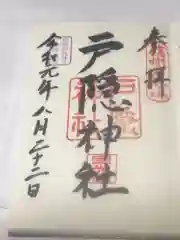 奉拝
戸隠神社
令和元年八月二十二日